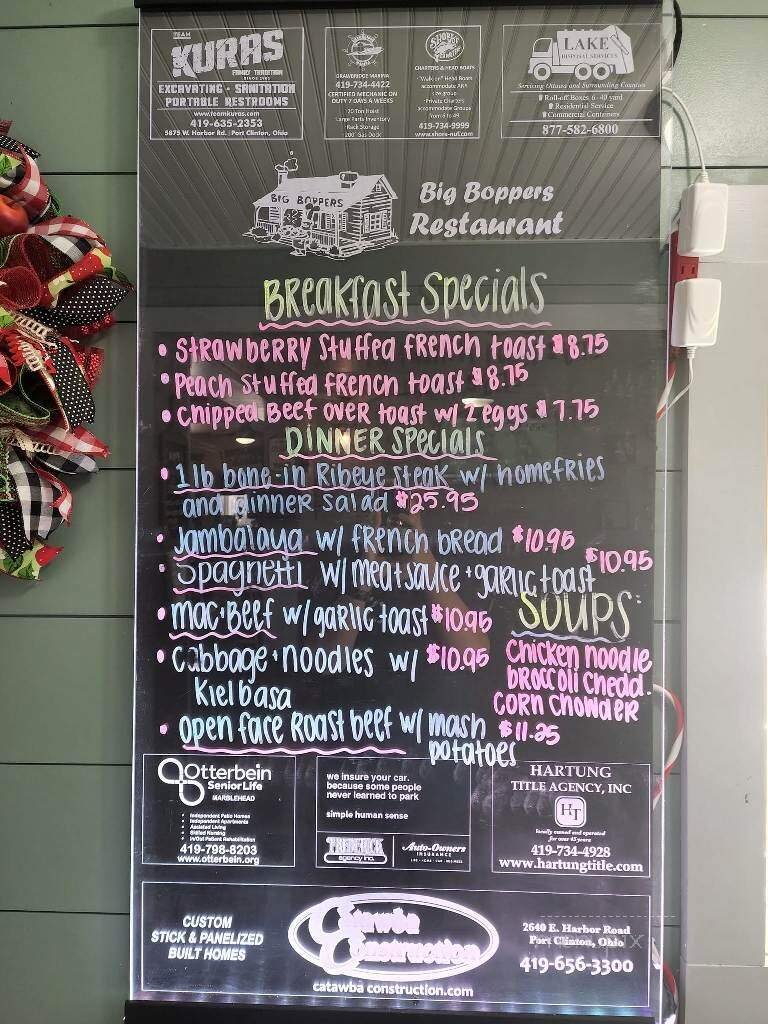 TEAM
KURAS
FAMILY TRADITION
EXCAVATING • SANITATION
PORTABLE RESTROOMS
www.teamkuras.com
419-635-2353
5875 W. Harbor Rd. Port Clinton, Ohio
DRAWBRIDGE MARINA
419-734-4422
CERTIFIED MECHANIC ON
DUTY 7 DAYS A WEEKS
70 Ton Hoist
Large Parts Inventory
Rack Storage
200' Gas Dock
CHARTERS & HEAD BOATS
"Walk-on" Head Boats
accommodate ANY
size group
Private Charters
accommodate Groups
419-734-9999
www.shore-nuf.com
LAKE
DISPOSAL SERVICES
Servicing Ottawa and Surrounding Counties
Roll-off Boxes 6-40 yard
Residential Service
Commercial Containers
877-582-6800
BIG BOPPERS
Big Boppers
Restaurant
Breakfast Specials
• Strawberry Stuffed French toast $8.75
• Peach stuffed French toast $8.75
• Chipped Beef over toast w/ 2 eggs $7.75
Dinner Specials
• 1 lb bone-in Ribeye steak w/ homefries
and dinner salad $25.95
• Jambalaya w/ french bread $10.95
• Spaghetti w/ meat sauce + garlic toast $10.95
• mac + Beef w/ garlic toast $10.95
• Cabbage + noodles w/ $10.95
Kielbasa
• open face Roast beef w/ mash $11.25
potatoes
SOUPS:
Chicken noodle
broccoli chedd.
corn chowder
Otterbein
SeniorLife
MARBLEHEAD
• Independent Patio Homes
• Independent Apartments
• Assisted Living
• Skilled Nursing
• In/Out Patient Rehabilitation
419-798-8203
www.otterbein.org
we insure your car.
because some people
never learned to park
simple human sense
FREDERICK
agency inc.
Auto-Owners
INSURANCE
LIFE • HOME • CAR • BUSINESS
HARTUNG
TITLE AGENCY, INC
HT
locally owned and operated
for over 45 years
419-734-4928
www.hartungtitle.com
CUSTOM
STICK & PANELIZED
BUILT HOMES
Catawba
Construction
catawba construction.com
2640 E. Harbor Road
Port Clinton, Ohio
419-656-3300